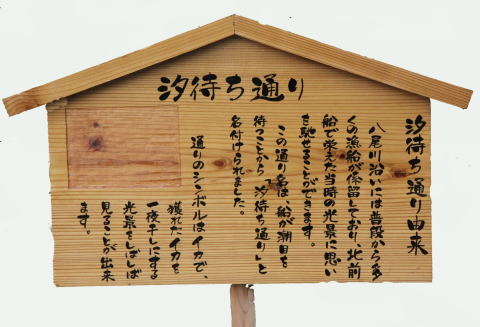 汐待ち通り
汐待ち通り由来
八尾川沿いには普段から多
くの漁船が係留しており、北前
船で栄えた当時の光景に思い
を馳せることができます。
この通り名は、船が潮目を
待つことから「汐待ち通り」と
名付けられました。
通りのシンボルはイカで、
獲れたイカを
一夜干しにする
光景をしばしば
見ることが出来
ます。